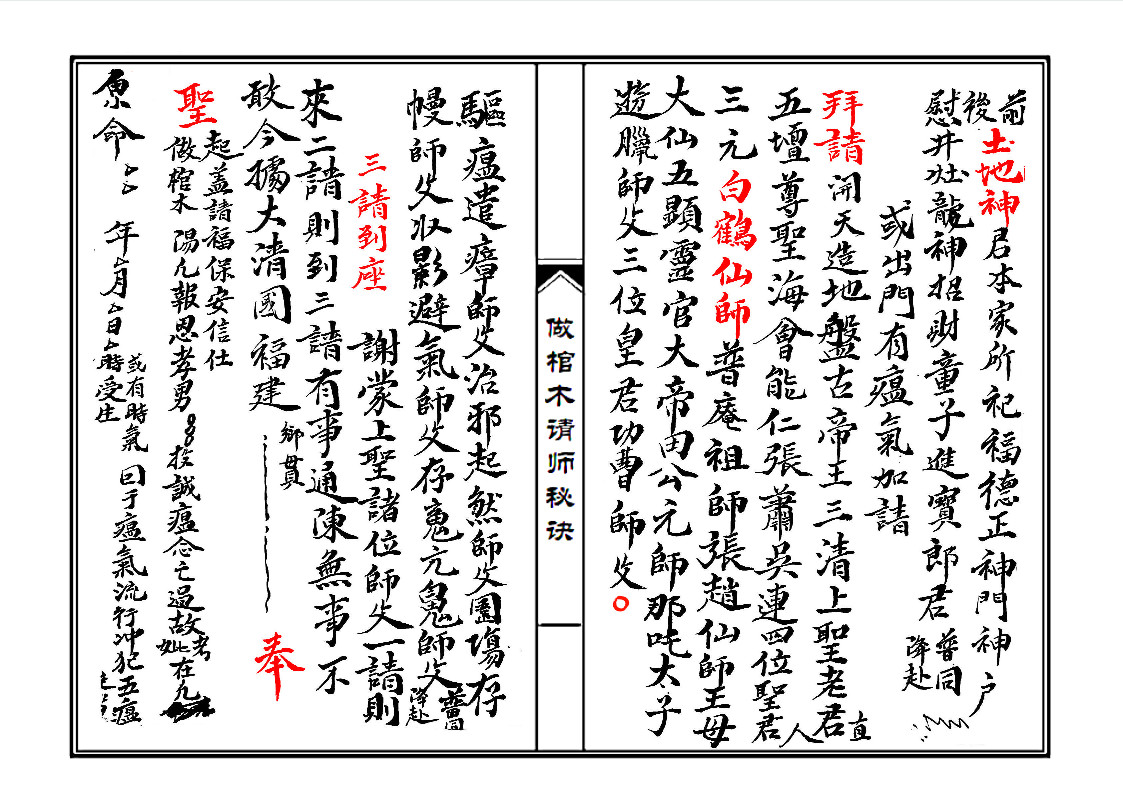 前後土地神君本家所祀福德正神門神户
慰井灶龍神招財童子進寶郎君普同降赴
或出門有瘟氣加請
拜請開天造地盤古帝王三清上聖老君直人
五壇尊聖海會能仁張蕭吳連四位聖君
三元白鶴仙師普庵祖師張趙仙師王母
大仙五顯靈官大帝田公元師那吒大子
遊臘師父三位皇君功曹師父
做棺木请师秘诀
驅瘟遣瘴師父治邪起煞師父園場存
幔師父收影避氣師父存魂亢魂師父普同降赴
三請到座
謝蒙上聖諸位師父一請則
來二請則到三請有事通陳無事不
敢今據大清國福建鄉貫奉
聖
起盖請福保安信仕
做棺木陽凡報恩孝男投誠瘟念亡過故考妣在九
原命年月日時受生
或有時氣曰于瘟氣流行冲犯五瘟